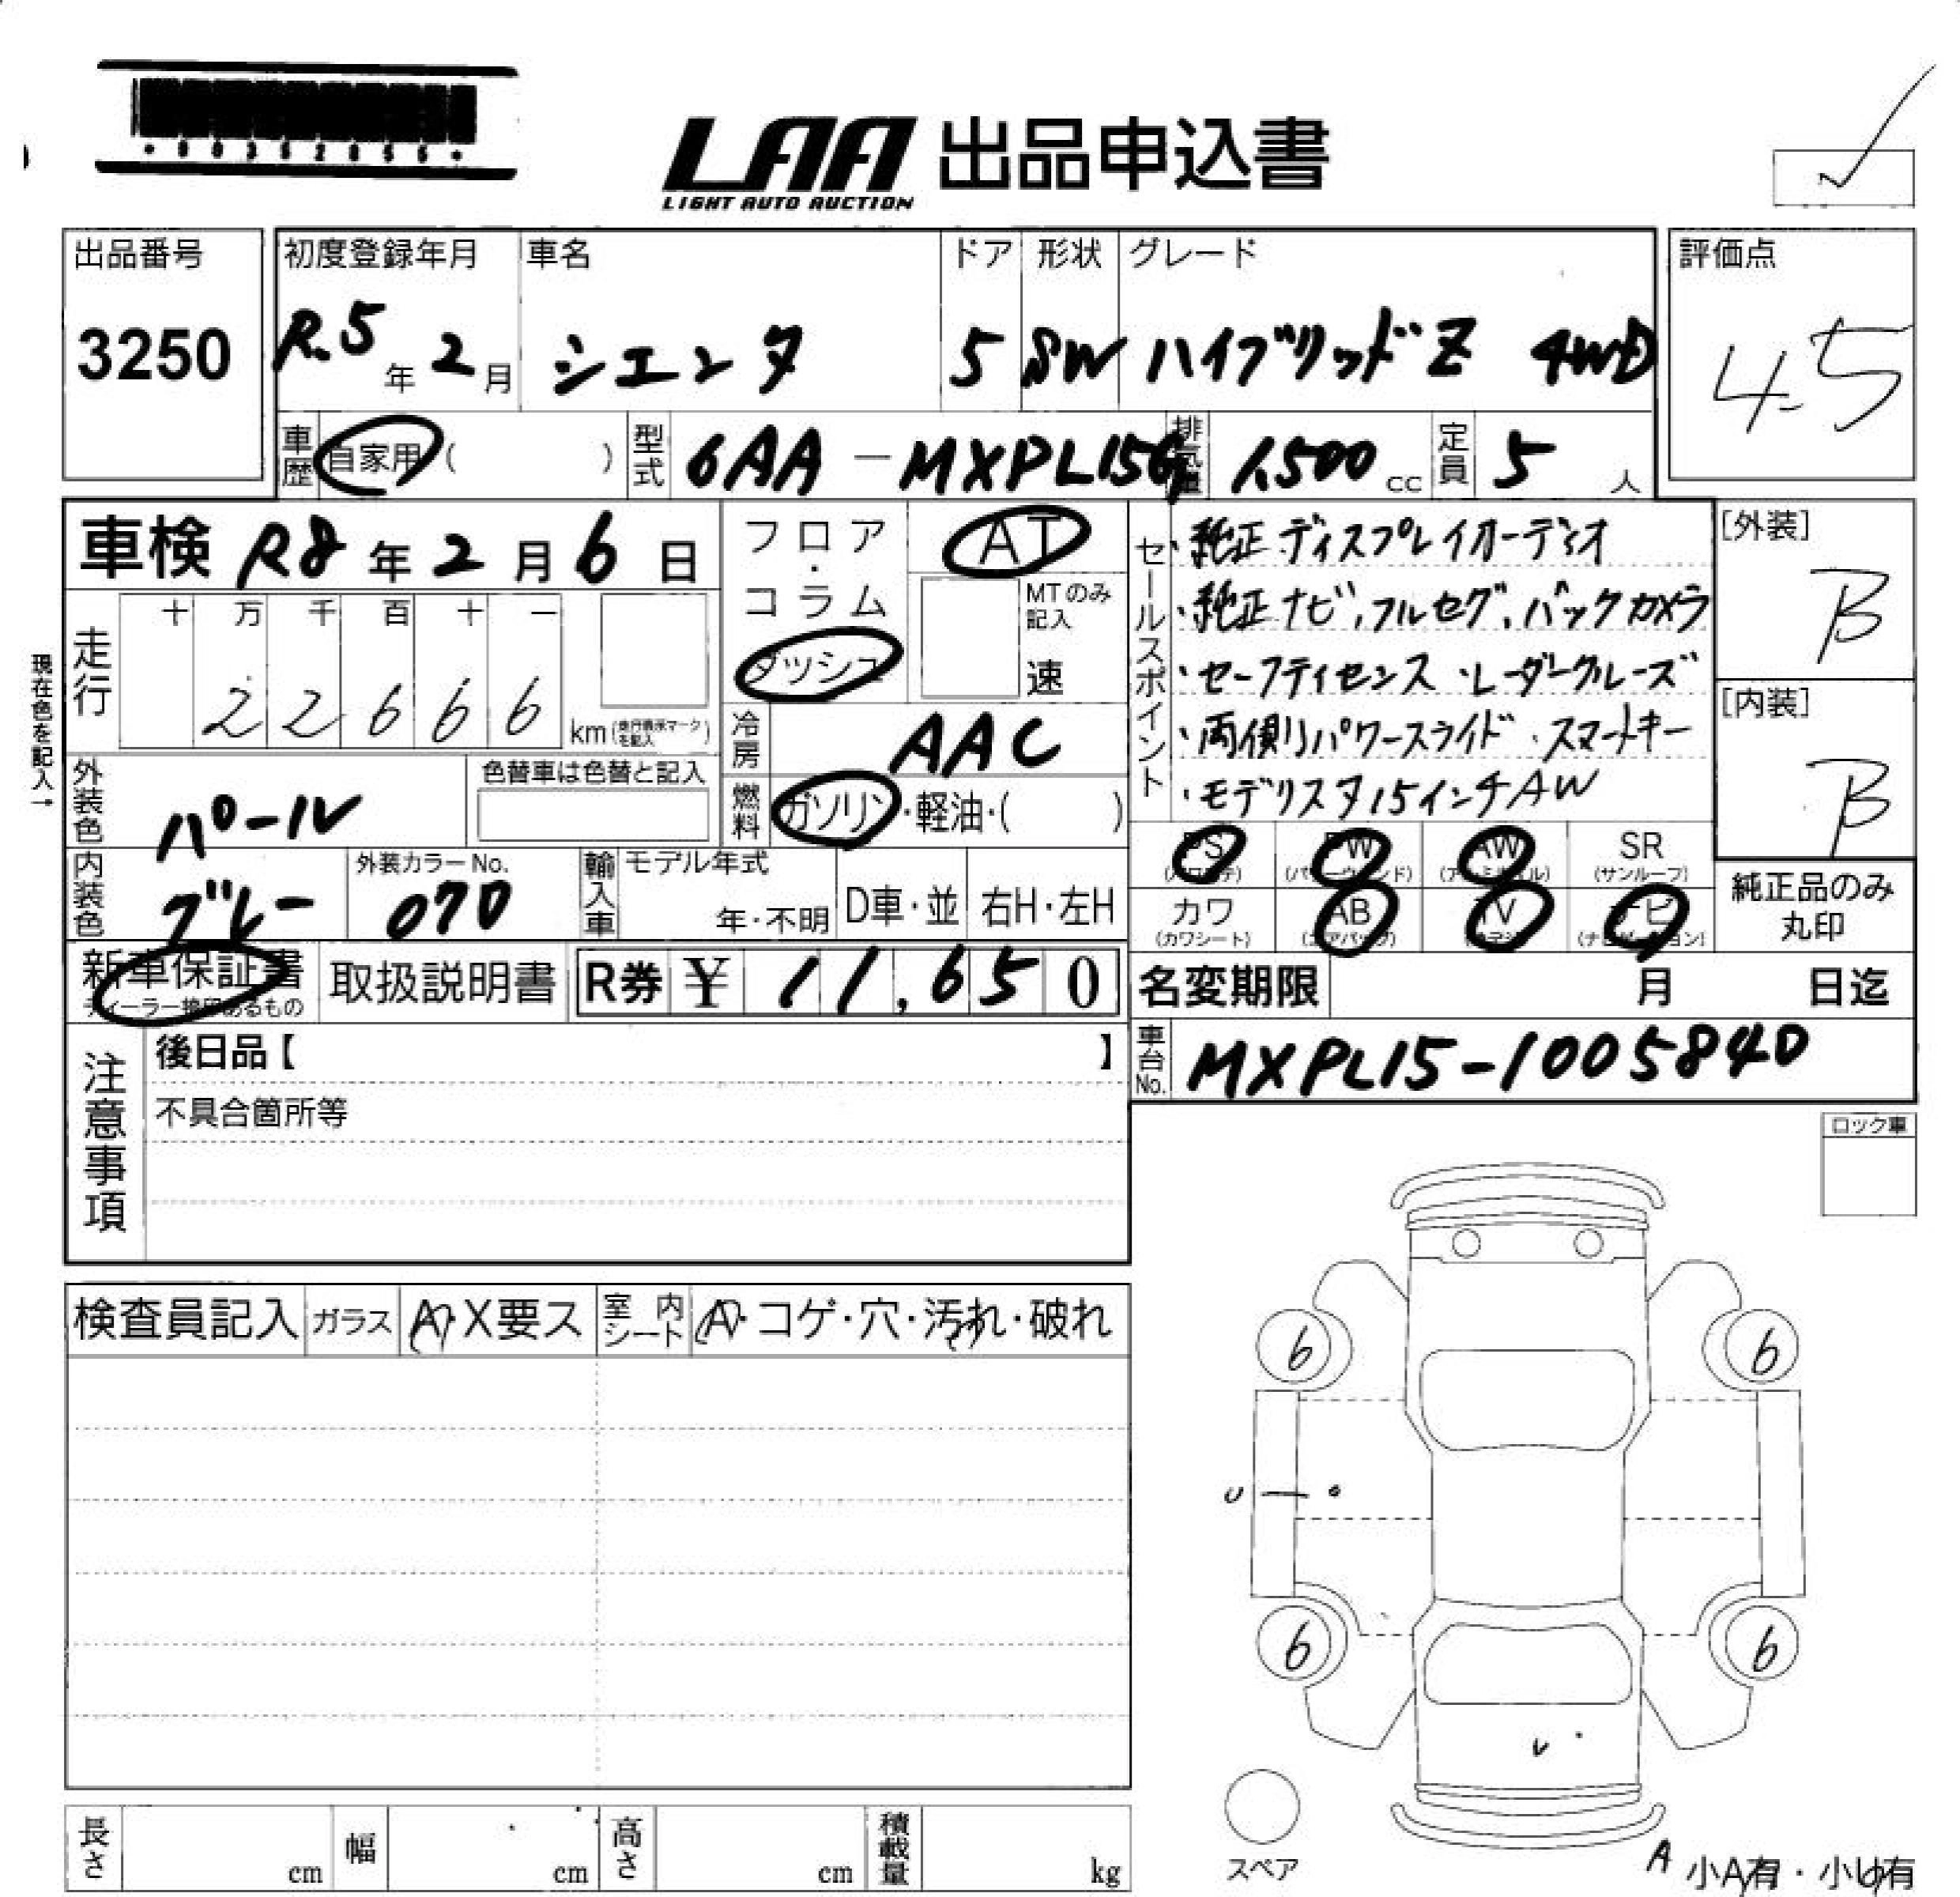 LAA 出品申込書
LIGHT AUTO AUCTION
出品番号
3250
初度登録年月 車名 ドア 形状 グレード
R.5年2月 シエンタ 5 SW ハイブリッドZ 4WD
評価点
4.5
車歴 自家用( ) 型式 6AA-MXPL15G 排気量 1,500cc 定員 5人
車検 R8年2月6日
フロア・コラム
ダッシュ
AT
MTのみ記入
速
セールスポイント
・純正ディスプレイオーディオ
・純正ナビ,フルセグ,バックカメラ
・セーフティセンス・レーダークルーズ
・両側パワースライド・スマートキー
・モデリスタ15インチAW
[外装]
B
[内装]
B
現在色を記入→
走行
十万千百十一
22666
km(走行表示マークを記入)
冷房 AAC
燃料 ガソリン・軽油・( )
外装色 パール
色替車は色替と記入
内装色 グレー
外装カラーNo.
070
輸入車 モデル年式
年・不明 D車・並 右H・左H
PS PW AW SR
(パワステ) (パワーウィンド) (アルミホイル) (サンルーフ)
カワ AB TV ナビ
(カワシート) (エアバック) (ナビゲーション)
純正品のみ
丸印
新車保証書
ディーラー捺印あるもの
取扱説明書
R券 ¥ 11,650
名変期限 月 日迄
車台No. MXPL15-1005840
注意事項
後日品【 】
不具合箇所等
ロック車
検査員記入 ガラス A・X要ス 室内シート A・コゲ・穴・汚れ・破れ
6 6
U
6 6
U
スペア
長さ cm 幅 cm 高さ cm 積載量 kg
A 小A有・小U有